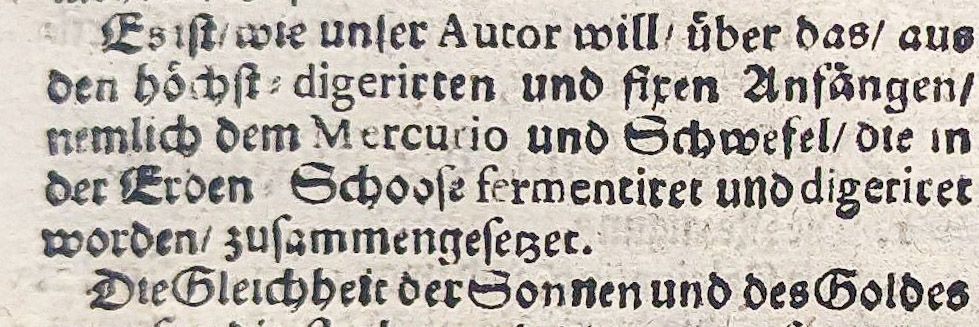 Es ist/ wie unser Autor will/ über das/ aus
den höchst-digerirten und fixen Anfängen/
nemlich dem Mercurio und Schwefel/ die in
der Erden Schoose fermentiret und digeriret
worden/ zusammengesetzet.
Die Gleichheit der Sonnen und des Goldes